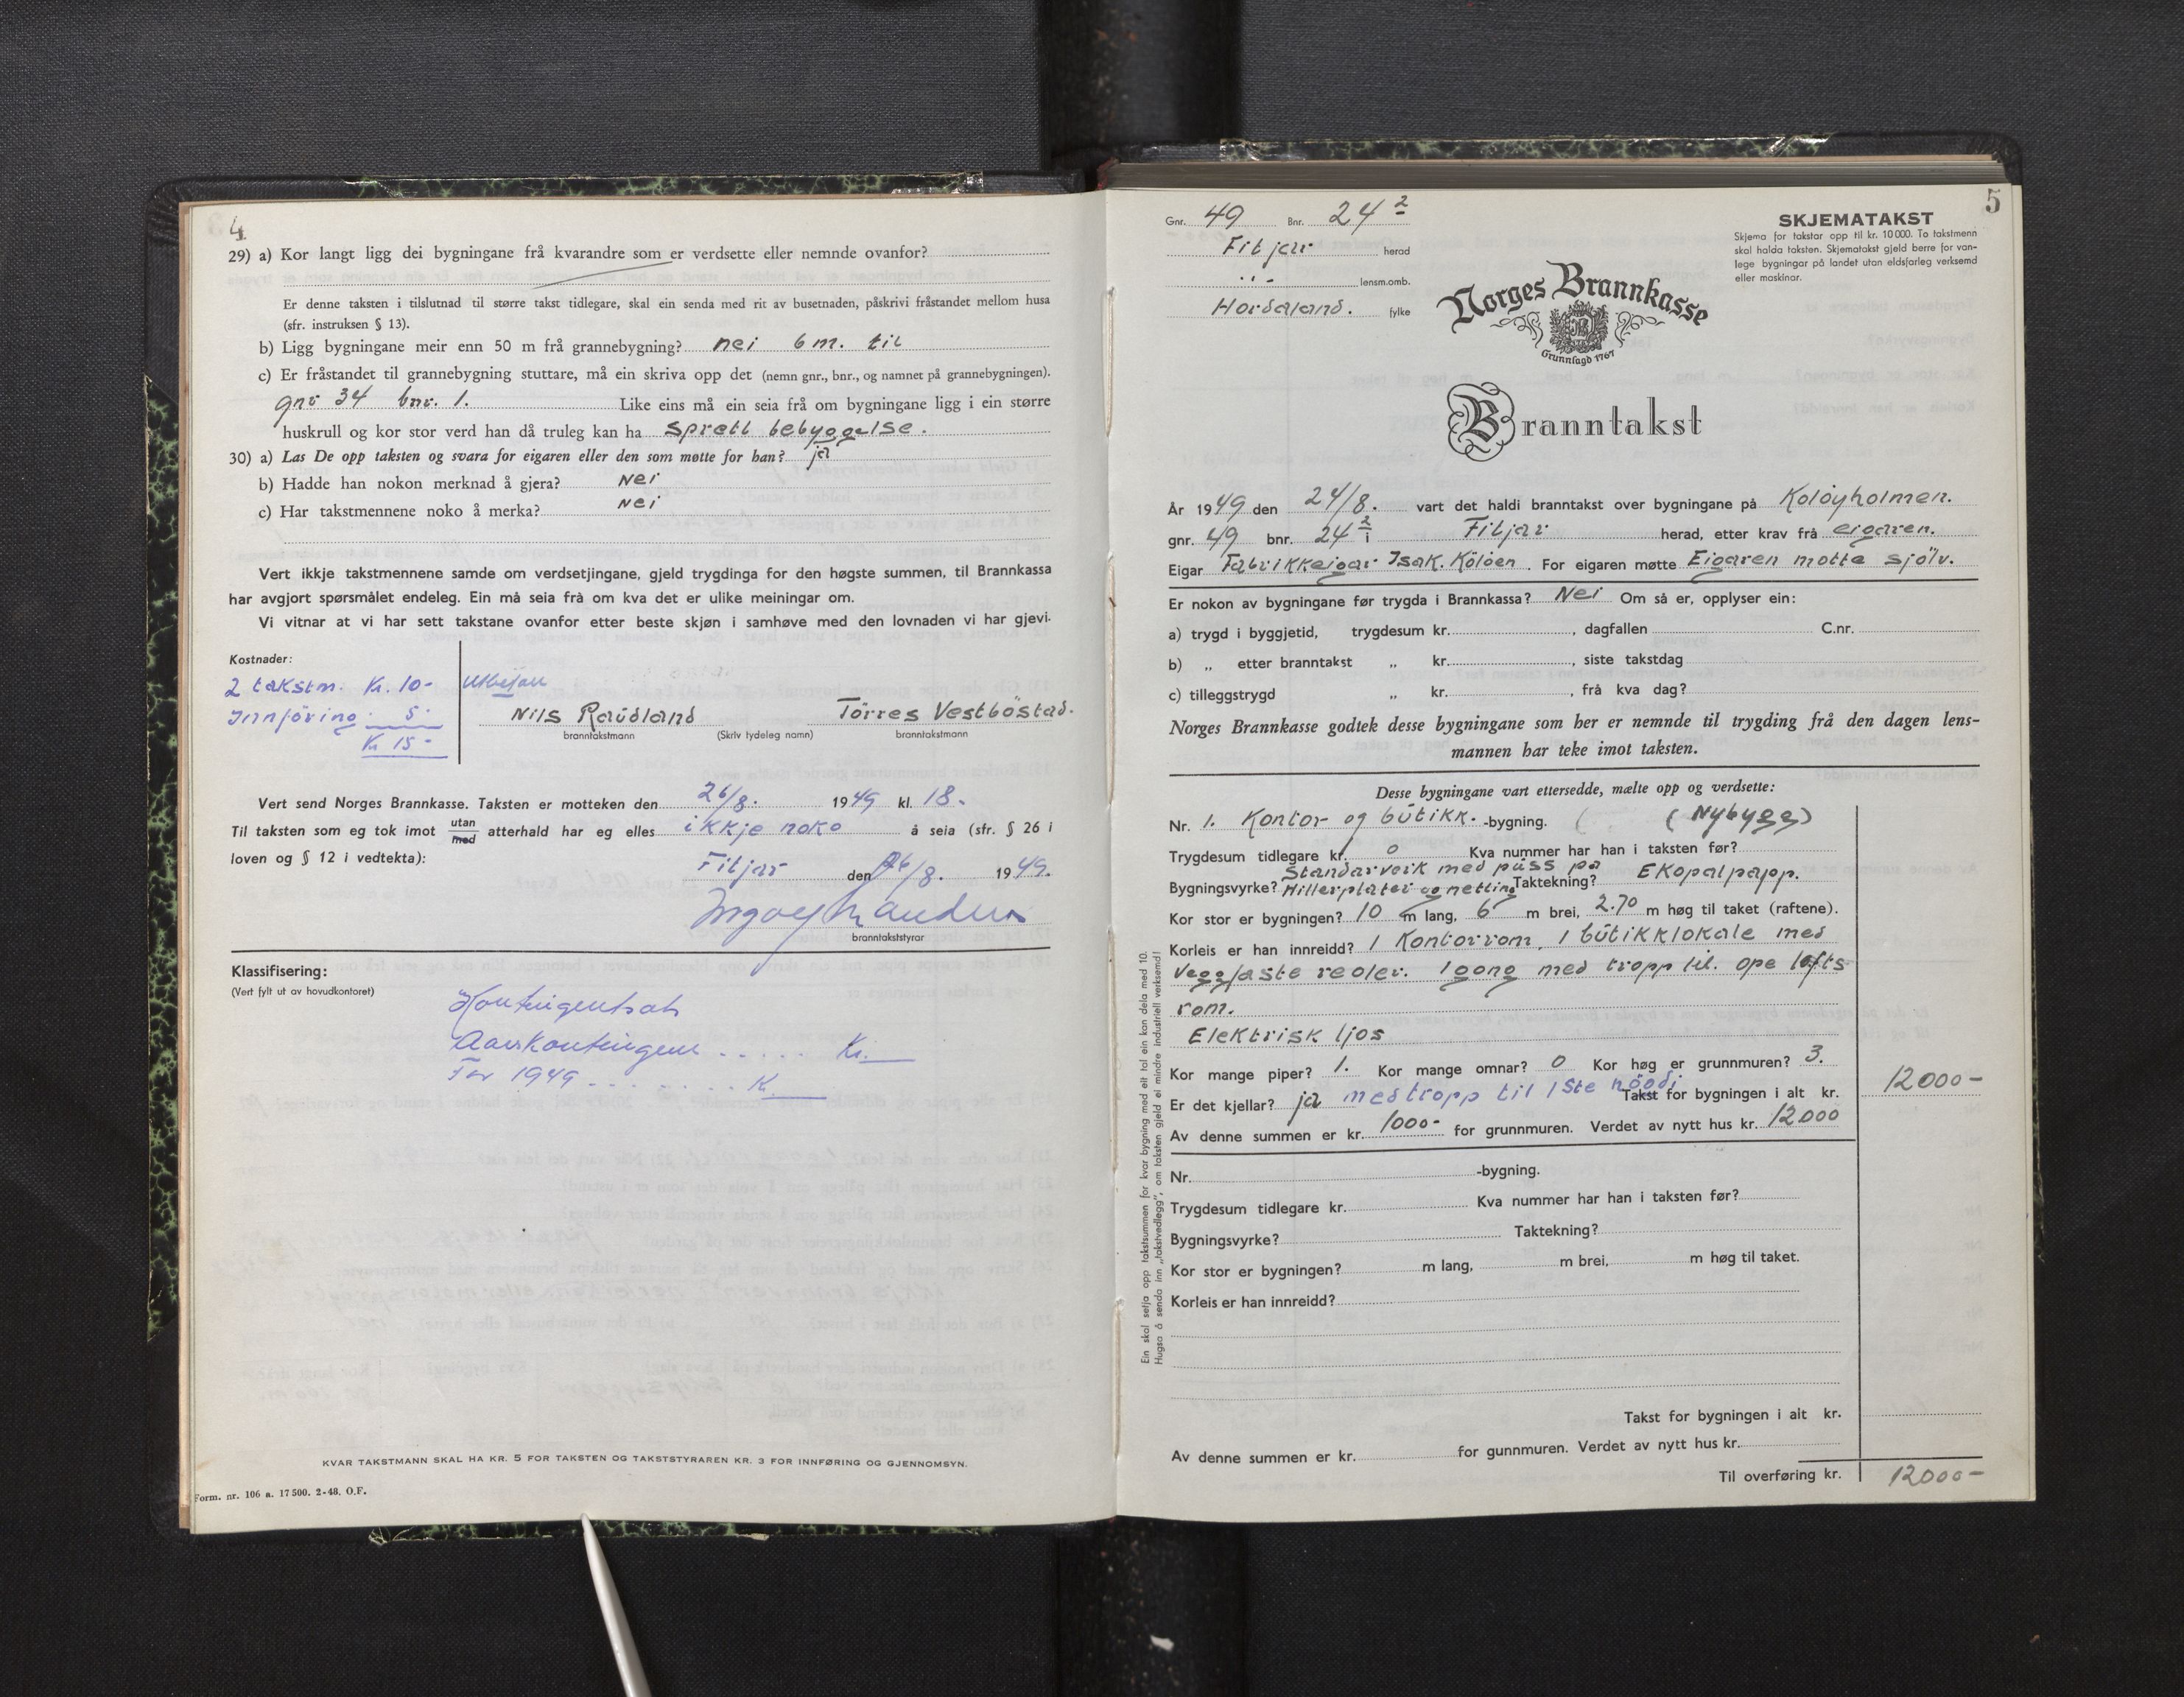 4
29) a) Kor langt ligg dei bygningane frå kvarandre som er verdsette eller nemnde ovanfor?
Er denne taksten i tilslutnad til større takst tidlegare, skal ein senda med rit av busetnaden, påskrivi fråstandet mellom husa
(sfr. instruksen § 13).
b) Ligg bygningane meir enn 50 m frå grannebygning? nei 6 m. til
c) Er fråstandet til grannebygning stuttare, må ein skriva opp det (nemn gnr., bnr., og namnet på grannebygningen).
gnr 34 bnr. 1. Like eins må ein seia frå om bygningane ligg i ein større
huskrull og kor stor verd han då truleg kan ha sprett bebyggelse.
30) a) Las De opp taksten og svara for eigaren eller den som møtte for han? ja
b) Hadde han nokon merknad å gjera? Nei
c) Har takstmennene noko å merka? Nei
Vert ikkje takstmennene samde om verdsetjingane, gjeld trygdinga for den høgste summen, til Brannkassa
har avgjort spørsmålet endeleg. Ein må seia frå om kva det er ulike meiningar om.
Vi vitnar at vi har sett takstane ovanfor etter beste skjøn i samhøve med den lovnaden vi har gjevi.
Kostnader:
2 takstm. Kr. 10-
Innföring. 5.
Kr 15-
Nils Raudland Törres Vestböstad.
branntakstmann (Skriv tydeleg namn) branntakstmann
Vert send Norges Brannkasse. Taksten er motteken den 26/8. 1949 kl. 18.
Til taksten som eg tok imot utan med atterhald har eg elles ikkje noko å seia (sfr. § 26 i
loven og § 12 i vedtekta):
Fitjar den 26/8. 1949.
branntakststyrar
Klassifisering:
(Vert fylt ut av hovudkontoret)
Kontingentsats
Aarskontingent ..... Kr.
For 1949 ........ K.
KVAR TAKSTMANN SKAL HA KR. 5 FOR TAKSTEN OG TAKSTSTYRAREN KR. 3 FOR INNFØRING OG GJENNOMSYN.
Form. nr. 106 a. 17 500. 2-48. O.F.
5
Gnr. 49 Bnr. 24 2
Fitjar herad
„ - lensm.omb.
Hordaland. fylke
SKJEMATAKST
Skjema for takstar opp til kr. 10 000. To takstmenn
skal halda taksten. Skjematakst gjeld berre for van-
lege bygningar på landet utan eldsfarleg verksemd
eller maskinar.
Norges Brannkasse
Grunnlagd 1767
Branntakst
År 1949 den 24/8. vart det haldi branntakst over bygningane på Kolöyholmen.
gnr. 49 bnr. 24 2 i Fitjar herad, etter krav frå eigaren.
Eigar Fabrikkeigar Isak. Kölöen. For eigaren møtte Eigaren motte sjölv.
Er nokon av bygningane før trygda i Brannkassa? Nei Om så er, opplyser ein:
a) trygd i byggjetid, trygdesum kr. , dagfallen C.nr.
b) „ etter branntakst „ kr. , siste takstdag
c) tilleggstrygd „ kr. , frå kva dag?
Norges Brannkasse godtek desse bygningane som her er nemnde til trygding frå den dagen lens-
mannen har teke imot taksten.
Desse bygningane vart ettersedde, mælte opp og verdsette:
Nr. 1. Kontor og bútikk. -bygning. (Nybygg)
Trygdesum tidlegare kr. 0 Kva nummer har han i taksten før?
Standarverk med púss på
Bygningsvyrke? Hillerplater og netting Taktekning? EKopalpapp.
Kor stor er bygningen? 10 m lang, 6 m brei, 2.70 m høg til taket (raftene).
Korleis er han innreidd? 1 Kontorrom, 1 bútikklokale med
Veggfaste reoler. 1 gong med tropp til. ope lofts
rom.
Elektrisk ljos
Kor mange piper? 1. Kor mange omnar? 0 Kor høg er grunnmuren? 3.
Er det kjellar? ja med tropp til 1ste höödi Takst for bygningen i alt kr. 12000-
Av denne summen er kr. 1000- for grunnmuren. Verdet av nytt hus kr. 12000
Nr. -bygning.
Trygdesum tidlegare kr. Kva nummer har han i taksten før?
Bygningsvyrke? Taktekning?
Kor stor er bygningen? m lang, m brei, m høg til taket.
Korleis er han innreidd?
Takst for bygningen i alt kr.
Av denne summen er kr. for gunnmuren. Verdet av nytt hus kr.
Til overføring kr. 12000-
Ein skal setja opp takstsummen for kvar bygning med eit tal ein kan dela med 10.
Hugsa å senda inn „takstvedlegg", om taksten gjeld ei mindre industriell verksemd!